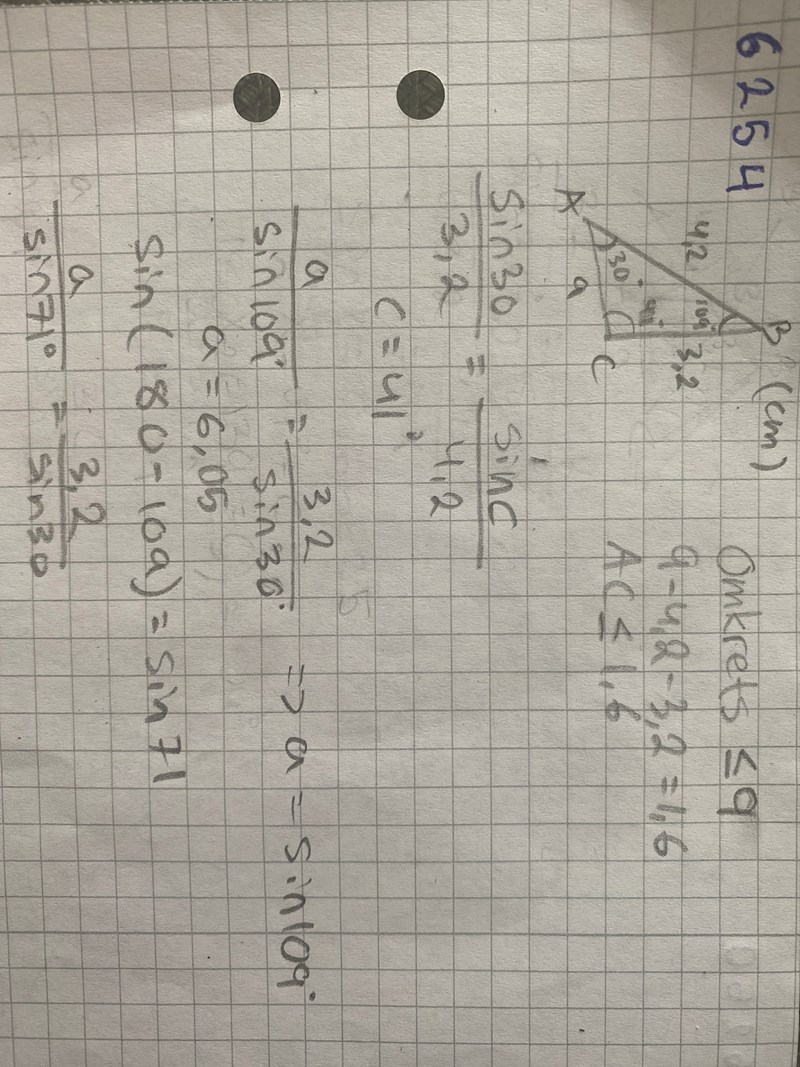 6254
B (cm)
4,2
109°
3,2
41°
30°
A
a
C
Omkrets ≤ 9
9-4,2-3,2=1,6
AC ≤ 1,6
sin30/3,2 = sinC/4,2
C = 41°
a/sin109° = 3,2/sin30° => a = sin109°
a = 6,05
sin(180-109) = sin71
a/sin71° = 3,2/sin30